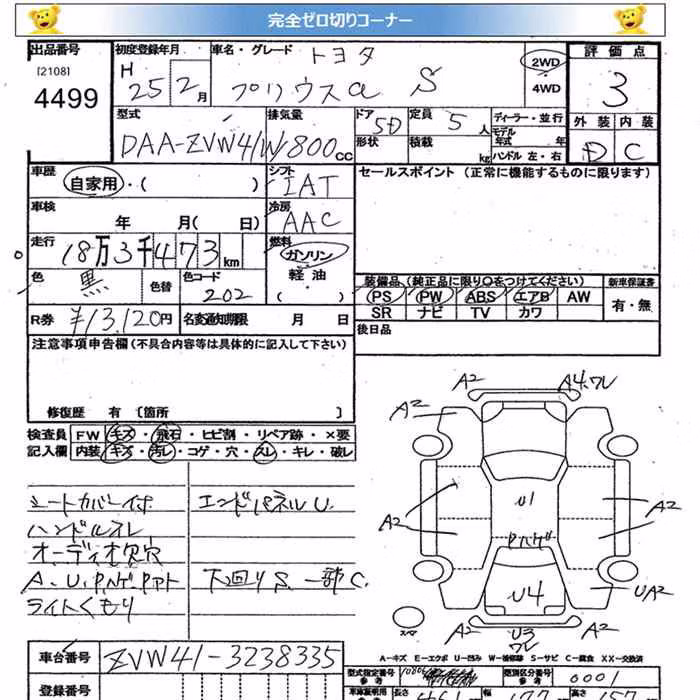 完全ゼロ切りコーナー
出品番号 初度登録年月 車名・グレード トヨタ 2WD 評価点
[2108] H 25 2月 プリウスα S 4WD 3
4499 型式 排気量 ドア 5D 定員 5人 ディーラー・並行 外装 内装
DAA-ZVW41W 1800cc 形状 積載 kg モデル年式 年 D C
ハンドル 左・右
車歴 シフト セールスポイント (正常に機能するものに限ります)
自家用・( ) IAT
車検 冷房
年 月( 日) AAC
走行 燃料
18万3千473km ガソリン
色 黒 色替 色コード 202 軽油
( )
装備品 (純正品に限り○をつけてください) 新車保証書
PS PW ABS エアB AW 有・無
SR ナビ TV カワ
R券 ¥13,120円 名変通知期限 月 日
後日品
注意事項申告欄 (不具合内容等は具体的に記入して下さい)
修復歴 有 [箇所 ]
検査員 FW キズ・飛石・ヒビ割・リペア跡・×要
記入欄 内装 キズ・汚レ・コゲ・穴・スレ・キレ・破レ
シートカバー付 エンドパネルU.
ハンドルスレ
オーディオ欠穴
A.U.Pハゲ. 下回りS.一部C.
ライトくもり
A2 A4.ワレ
A2
A2 U1 A2
Pハゲ
U4 UA2
スペア A2 U3 A2
ワレ
A-キズ E-エクボ U-凹み W-補修跡 S-サビ C-腐食 XX-交換済
車台番号 ZVW41-3238335 型式指定番号 類別区分番号 0001
参考 参考
登録番号 長さ 幅 高さ